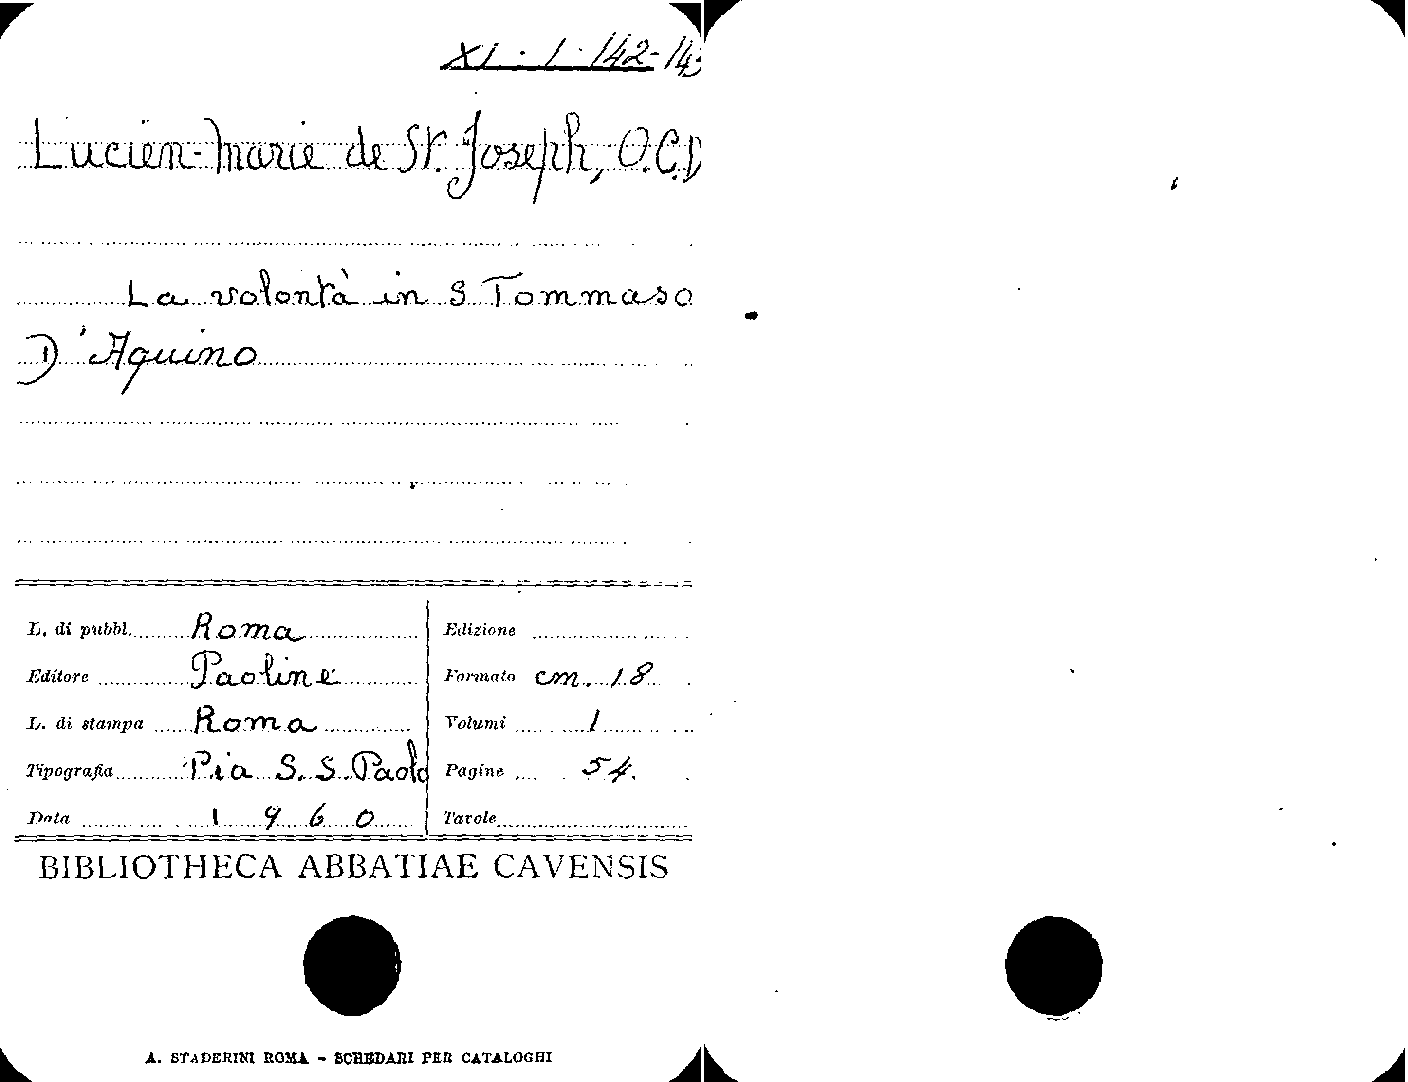 XI · 1 · 142-143
Lucien-Marie de St. Joseph, O.C.D
La volontà in S Tommaso
D'Aquino
L. di pubbl. Roma
Editore Paoline
L. di stampa Roma
Tipografia Pia S. S. Paolo
Data 1960
Edizione
Formato cm. 18
Volumi 1
Pagine 54.
Tavole
BIBLIOTHECA ABBATIAE CAVENSIS
A. STADERINI ROMA - SCHEDARI PER CATALOGHI